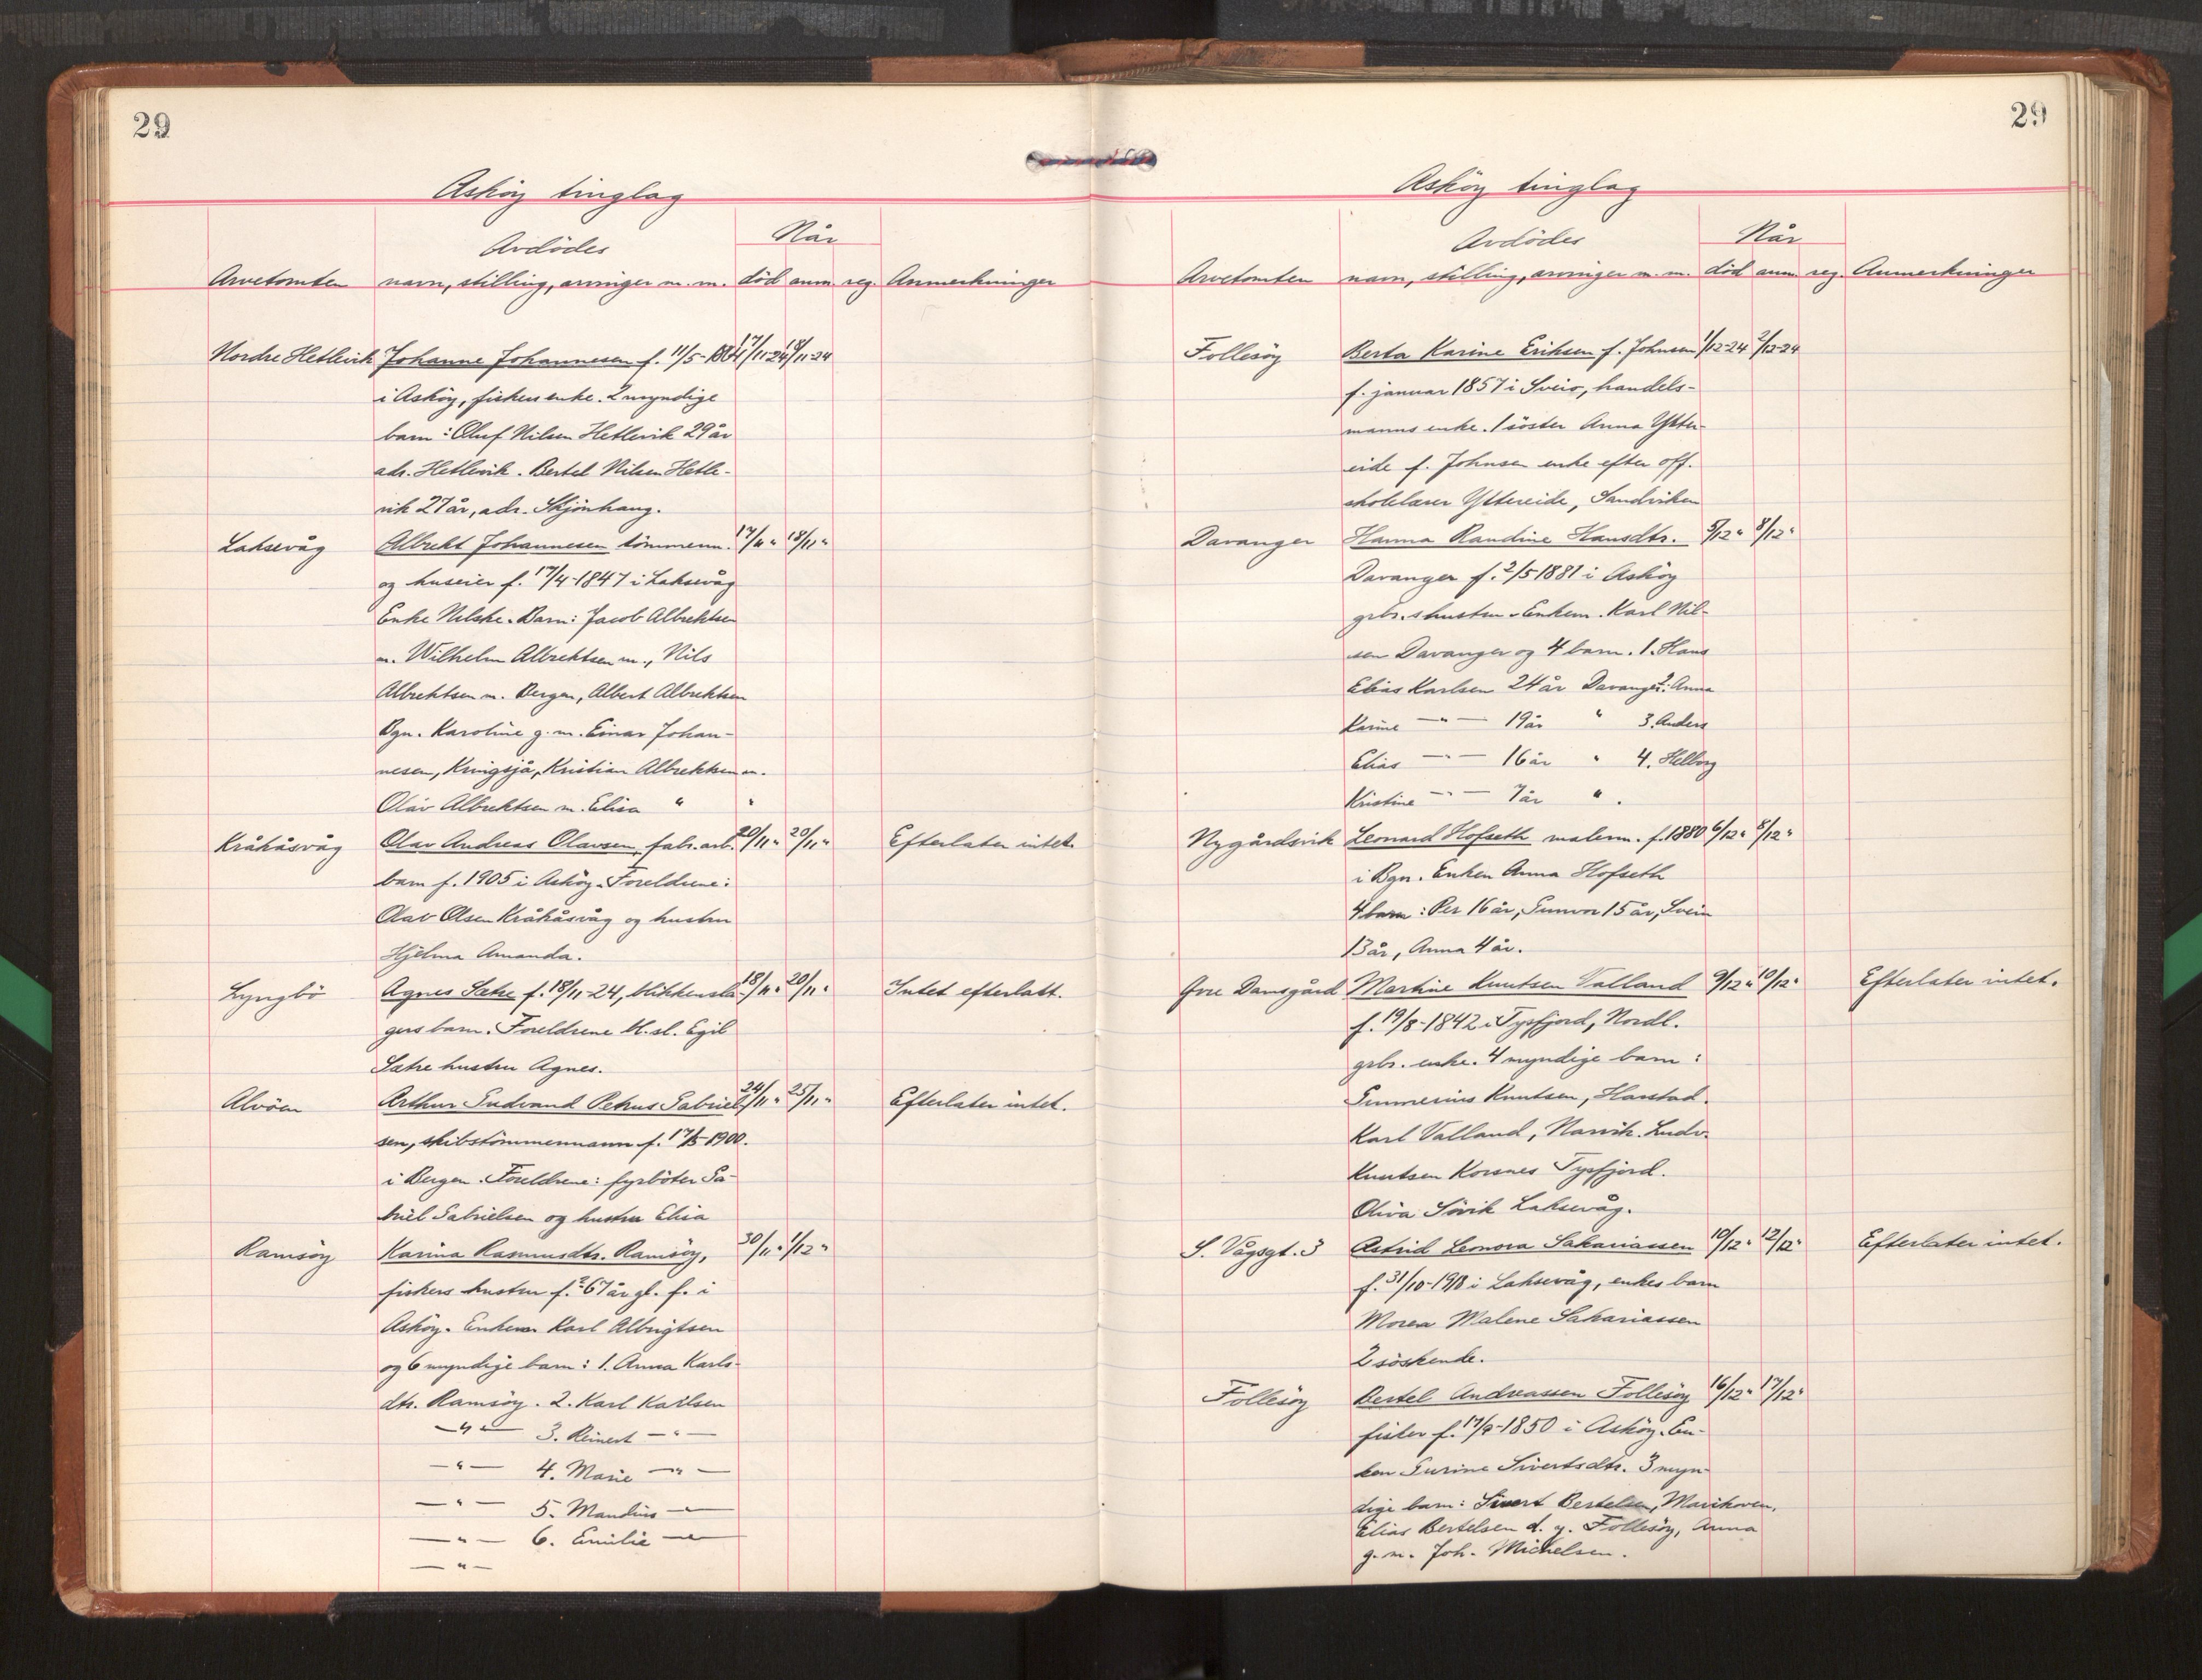 29
Askøy tinglag
Avdödes
Når
Arvetomten navn, stilling, arvinger m. m. död anm. reg. Anmerkninger
Nordre Hetlevik Johanne Johannesen f. 11/5-1864 17/11-24 19/11-24
i Askøy, fiskers enke. 2 myndige
barn: Oluf Nilsen Hetlevik 29 år
adr. Hetlevik. Bertel Nilsen Hetle-
vik 27 år, adr. Skjönhaug.
Laksevåg Albrekt Johannesen tömmerm. 17/11 " 18/11 "
og huseier f. 17/4-1847 i Laksevåg
Enke Nilske. Barn: Jacob Albrektsen
m. Wilhelm Albrektsen m., Nils
Albrektsen m. Bergen, Albert Albrektsen
Bgn. Karoline g. m. Einar Johan-
nesen, Kringsjå, Kristian Albrektsen m.
Olav Albrektsen m. Elisa " "
Kråkåsvåg Olav Andreas Olavsen, fabr. arb. 20/11 " 20/11 " Efterlater intet.
barn f. 1905 i Askøy. Foreldrene:
Olav Olsen Kråkåsvåg og hustru
Hjelma Amanda.
Lyngbö Agnes Sætre f. 18/11-24, blikkenslå- 18/11 " 20/11 " Intet efterlatt.
gers barn. Foreldrene bl. sl. Egil
Sætre hustru Agnes.
Alvöen Arthur Gudvand Petrus Gabriel- 24/11 " 25/11 " Efterlater intet.
sen, skibstömmermann f. 17/5-1900.
i Bergen. Foreldrene: fyrböter Ga-
briel Gabrielsen og hustru Elisa
Ramsöy Karina Rasmusdtr. Ramsöy, 30/11 " 1/12 "
fiskers hustru f. ? 67 år gl. f. i
Askøy. Enkem. Karl Albrigtsen
og 6 myndige barn: 1. Anna Karls-
dtr. Ramsöy. 2. Karl Karlsen
— " — 3. Reinert — " —
— " — 4. Marie — " —
— " — 5. Mandius — " —
— " — 6. Emilie — " —
— " —
29
Askøy tinglag
Avdödes
Når
Arvetomten navn, stilling, arvinger m. m. död anm. reg. Anmerkninger
Follesöy Berta Karine Eriksen f. Johnsen 1/12-24 2/12-24
f. januar 1857 i Sveio, handels-
manns enke. 1 söster Anna Ytter-
eide f. Johnsen enke efter off.
skolelærer Yttereide, Sandviken
Davanger Hanna Randine Hansdtr. 5/12 " 8/12 "
Davanger f. 2/5 1881 i Askøy
grbr.s hustru. Enkem. Karl Nil-
sen Davanger og 4 barn. 1. Hans
Elias Karlsen 24 år Davanger. 2. Anna
Karine — " — 19 år " 3. Anders
Elias — " — 16 år " 4. Helborg
Kristine — " — 7 år ".
Nygårdsvik Leonard Hofseth malerm. f. 1880 6/12 " 8/12 "
i Bgn. Enken Anna Hofseth
4 barn: Per 16 år, Gunvor 15 år, Svein
13 år, Anna 4 år.
Øvre Damsgård Martine Knutsen Valland 9/12 " 10/12 " Efterlater intet.
f. 19/8-1842 i Tysfjord, Nordl.
grbr. enke. 4 myndige barn:
Gunnerius Knutsen, Harstad.
Karl Valland, Narvik. Ludv.
Knutsen Korsnes Tysfjord.
Oliva Sörvik Laksevåg.
S. Vågsgt. 3 Astrid Leonora Sakariassen 10/12 " 12/12 " Efterlater intet.
f. 31/10-1918 i Laksevåg, enkes barn
Moren Malene Sakariassen
2 söskende.
Follesöy Bertel Andreassen Follesöy 16/12 " 17/12 "
fisker f. 17/9-1850 i Askøy. En-
ken Gurine Sivertsdtr. 3 myn-
dige barn: Sivert Bertelsen, Marikoven.
Elias Bertelsen d. y. Follesöy, Anna
g. m. Joh. Michelsen.